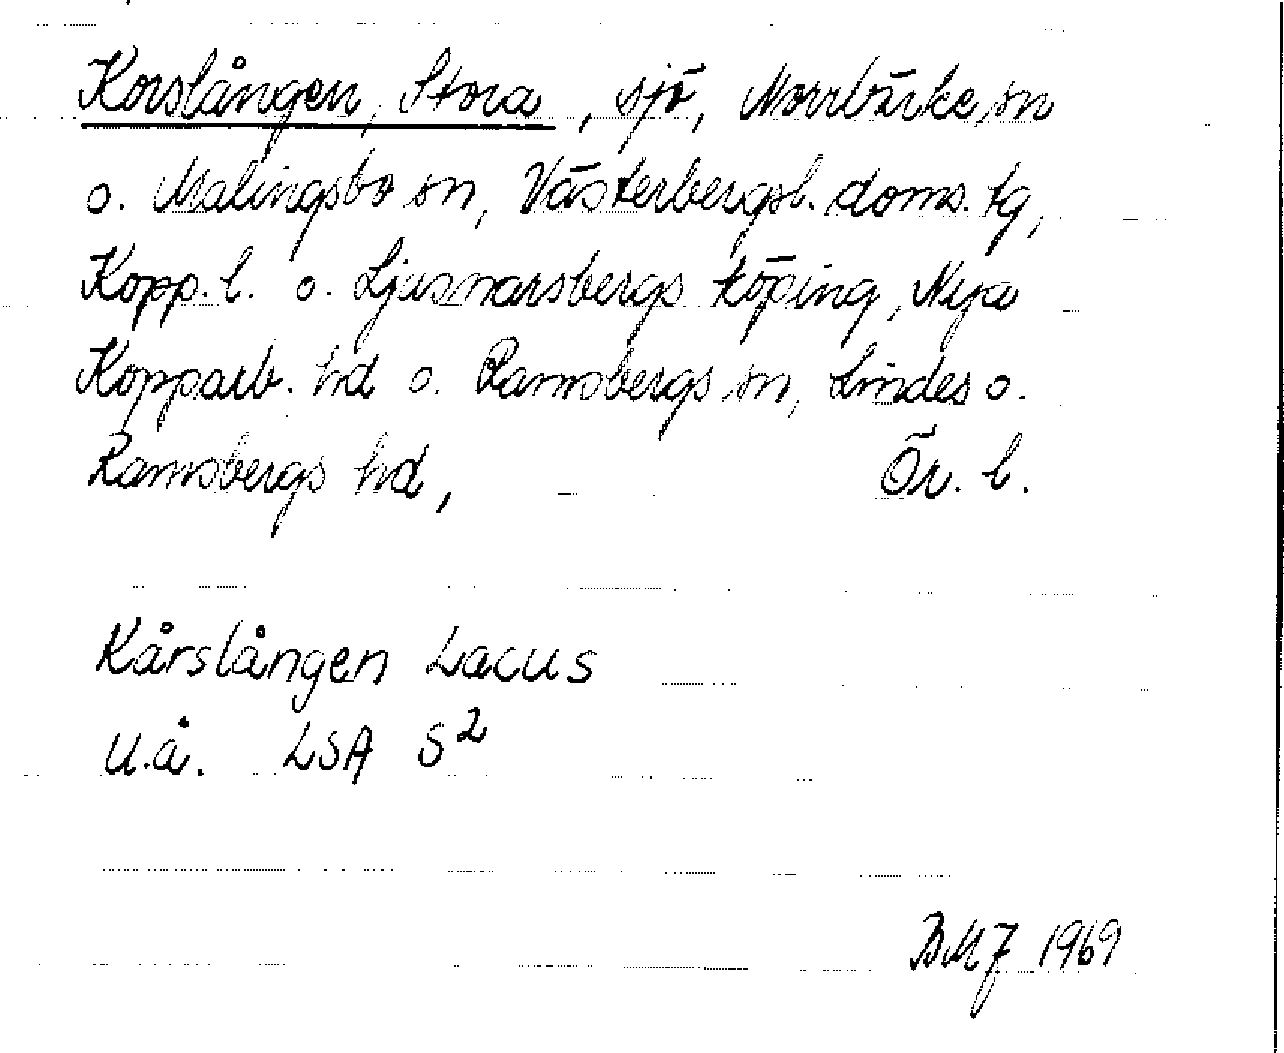 Korslången, Stora, sjö, Norrbärke sn
o. Malingsbo sn, Västerbergsl. doms. tg,
Kopp. l. o. Ljusnarsbergs köping, Nya
Kopparb. hd o. Ramsbergs sn, Lindes o.
Ramsbergs hd, Ör. l.
Kårslången Lacus
u.å. LSA S2
BMJ 1969